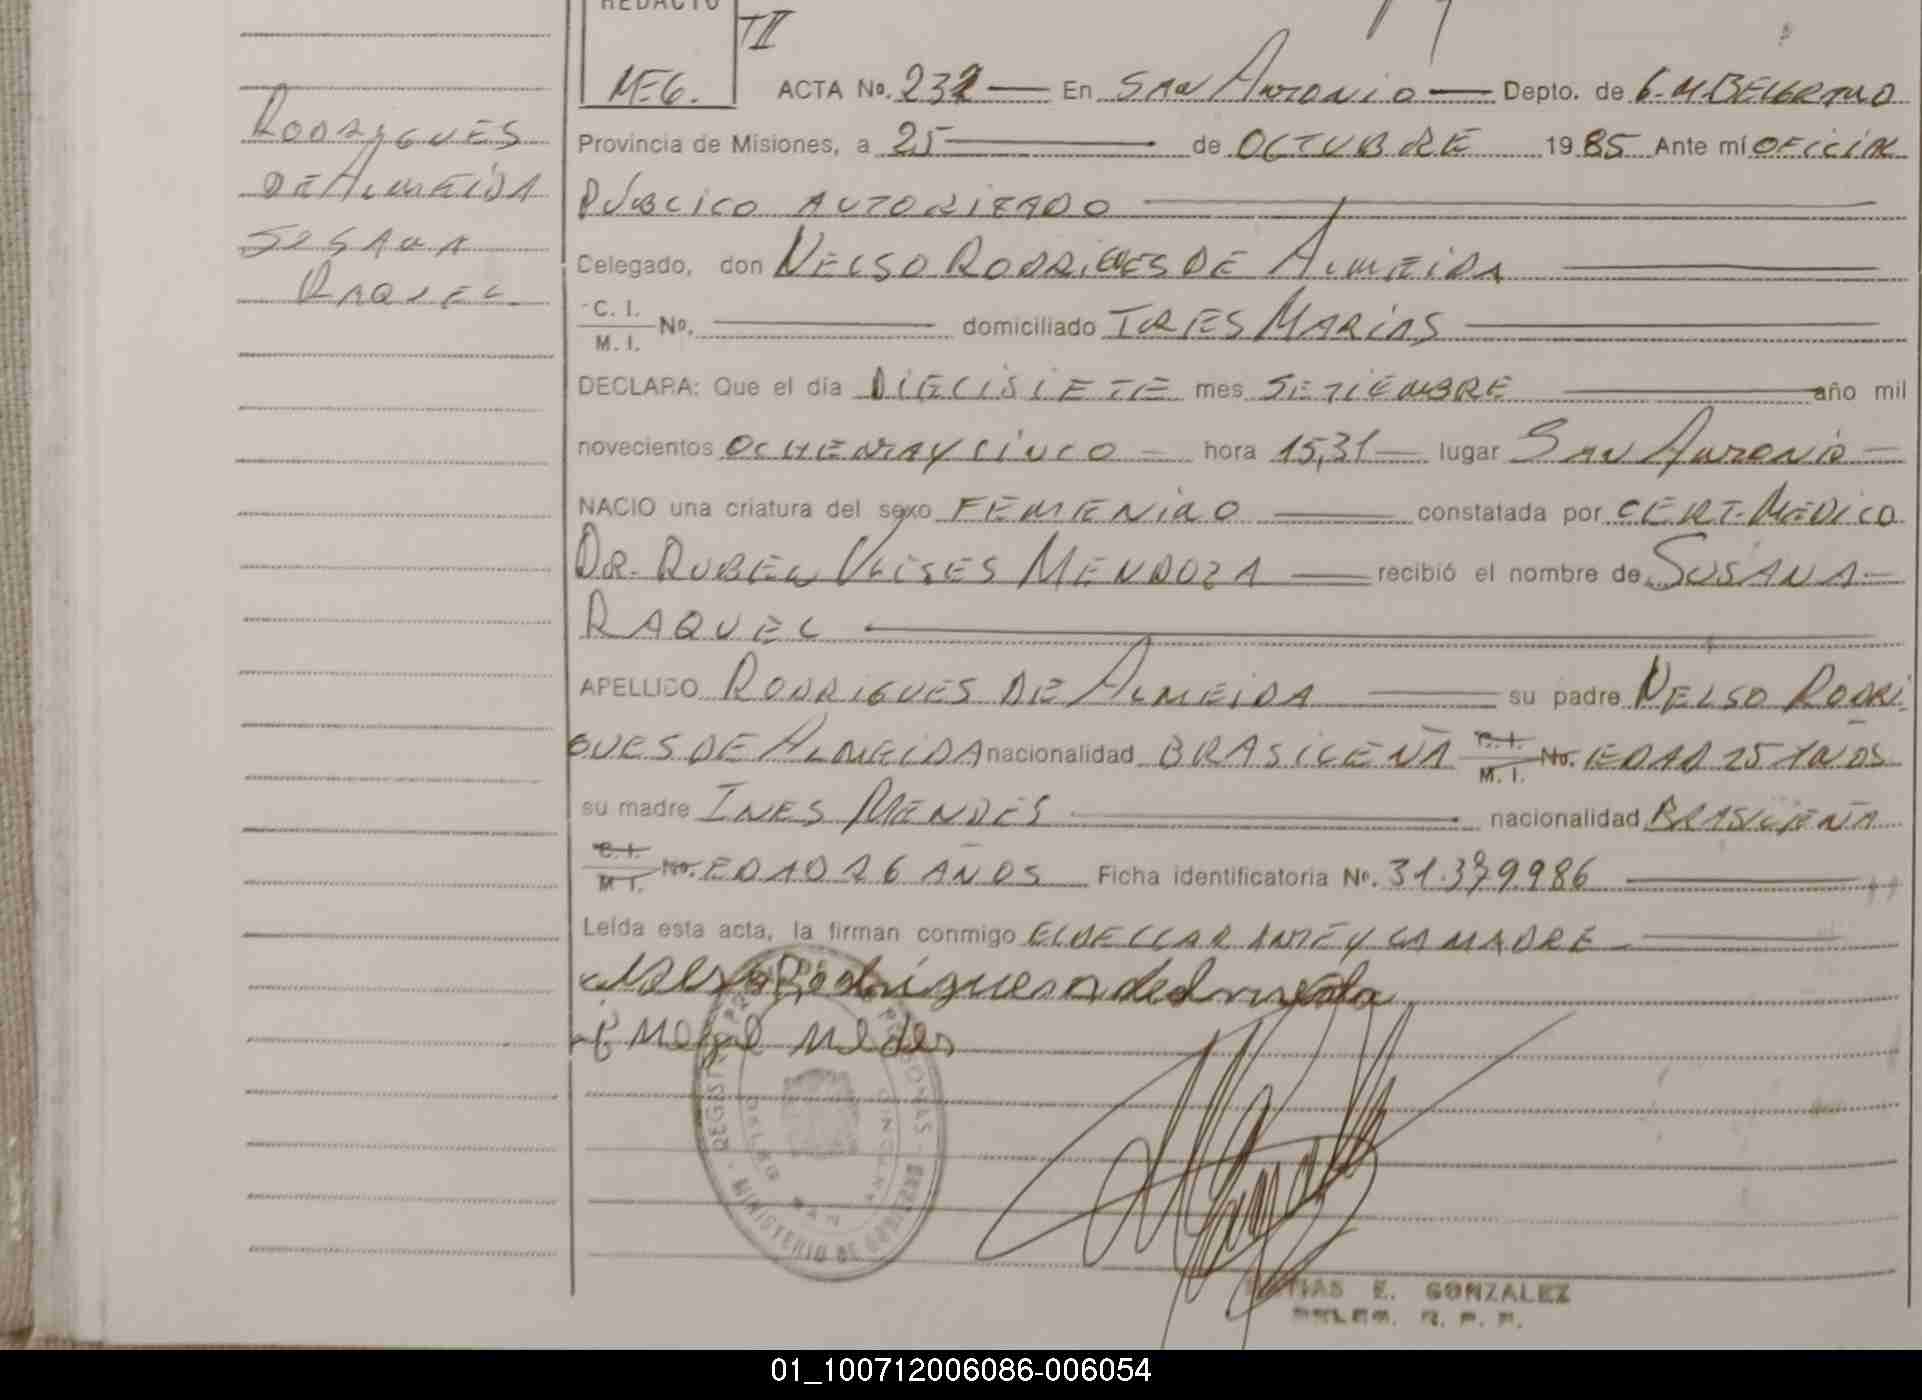 REDACTO
TII
MEG.
ACTA No. 232 En San Antonio Depto. de G. M. BELGRANO
RODRIGUES
DE ALMEIDA
SUSANA
RAQUEL
Provincia de Misiones, a 25 de OCTUBRE 1985 Ante mí OFICIAL
PÚBLICO AUTORIZADO
Celegado, don NELSO RODRIGUES DE ALMEIDA
C. I.
M. I. No. domiciliado TRES MARIAS
DECLARA: Que el día DIECISIETE mes SETIEMBRE año mil
novecientos OCHENTA Y CINCO hora 15,31 lugar SAN ANTONIO
NACIO una criatura del sexo FEMENINO constatada por CERT. MEDICO
DR. RUBEN ULISES MENDOZA recibió el nombre de SUSANA
RAQUEL
APELLIDO RODRIGUES DE ALMEIDA su padre NELSO RODRI
GUES DE ALMEIDA nacionalidad BRASILEÑA C. I. M. I. No. EDAD 25 AÑOS
su madre INES MENDES nacionalidad BRASILEÑA
C. I. M. I. No. EDAD 26 AÑOS Ficha identificatoria No. 31.379.986
Leída esta acta, la firman conmigo EL DECLARANTE Y LA MADRE
MINISTERIO DE GOBIERNO
E. GONZALEZ
01_100712006086-006054